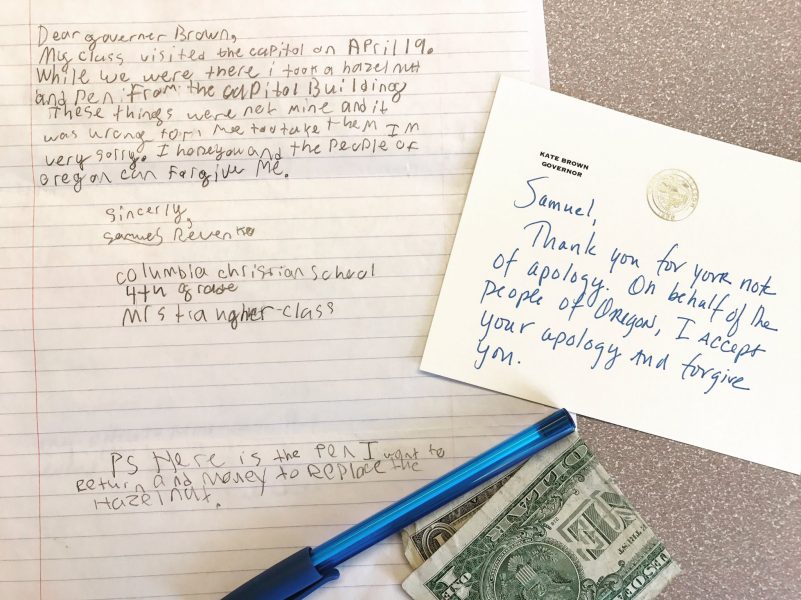 Dear governer Brown,
My class visited the capitol on April 19.
While we were there i took a hazelnut
and pen from the capitol Building
These things were not mine and it
was wrong for me too take them I'm
very sorry. I hope you and the people of
oregon can forgive me.
sincerly,
samuel
columbia christian school
4th grade
Mrs class
PS Here is the pen I want to
return and money to replace the
Hazelnut.
KATE BROWN
GOVERNOR
Samuel,
Thank you for your note
of apology. On behalf of the
people of Oregon, I accept
your apology and forgive
you.
ONE